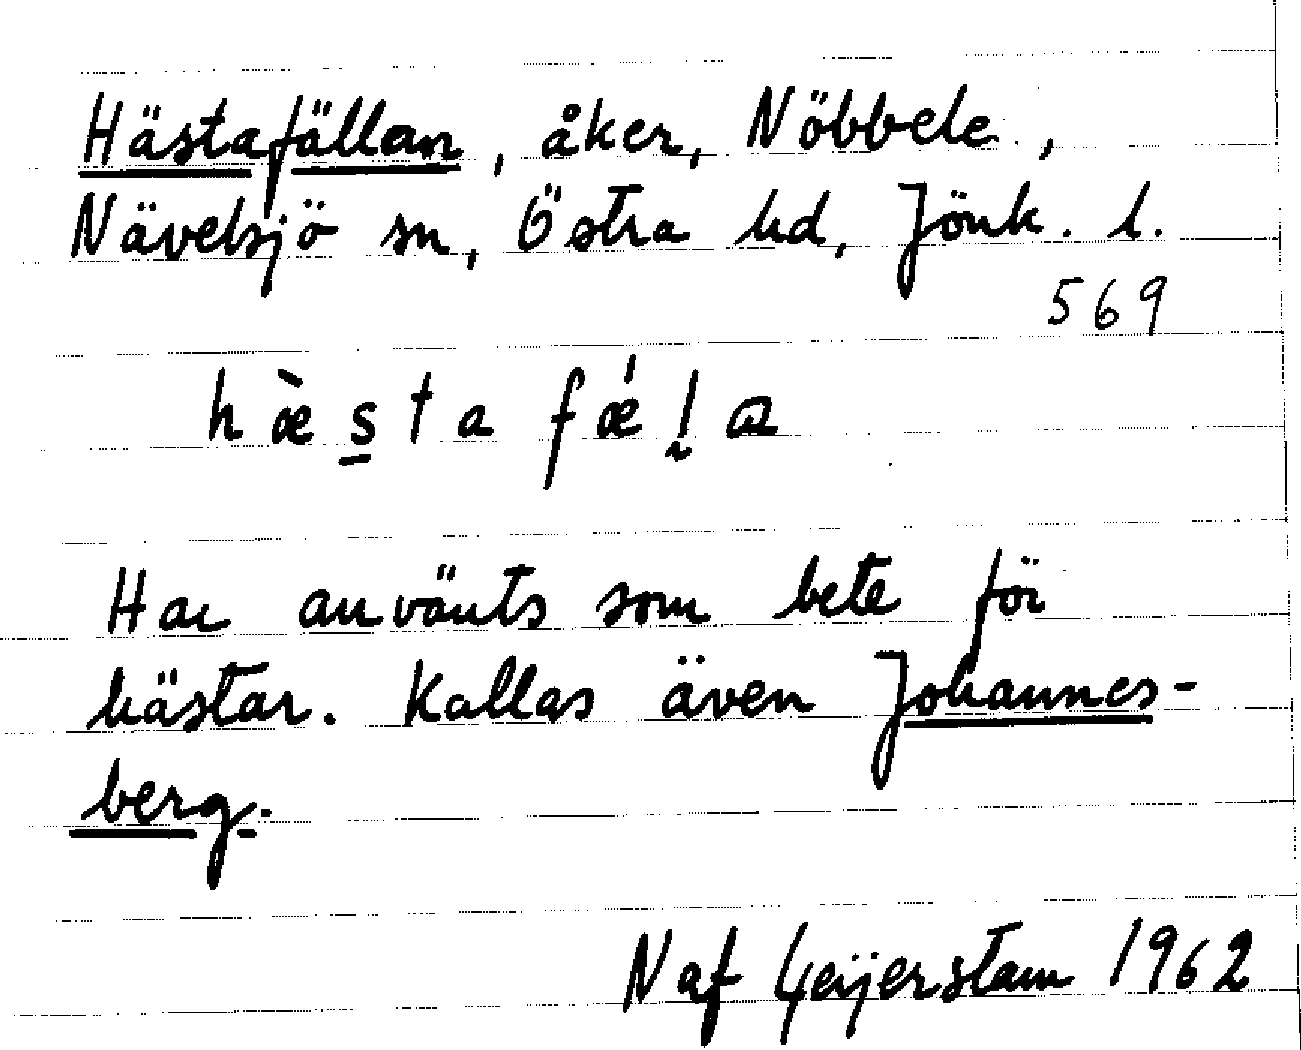 Hästafällan, åker, Nöbbele,
Nävelsjö sn, Östra hd, Jönk. l.
569
hæ̀s̲ta fǽl̰ɑ
Har använts som bete för
hästar. Kallas även Johannes-
berg.
N af Geijerstam 1962